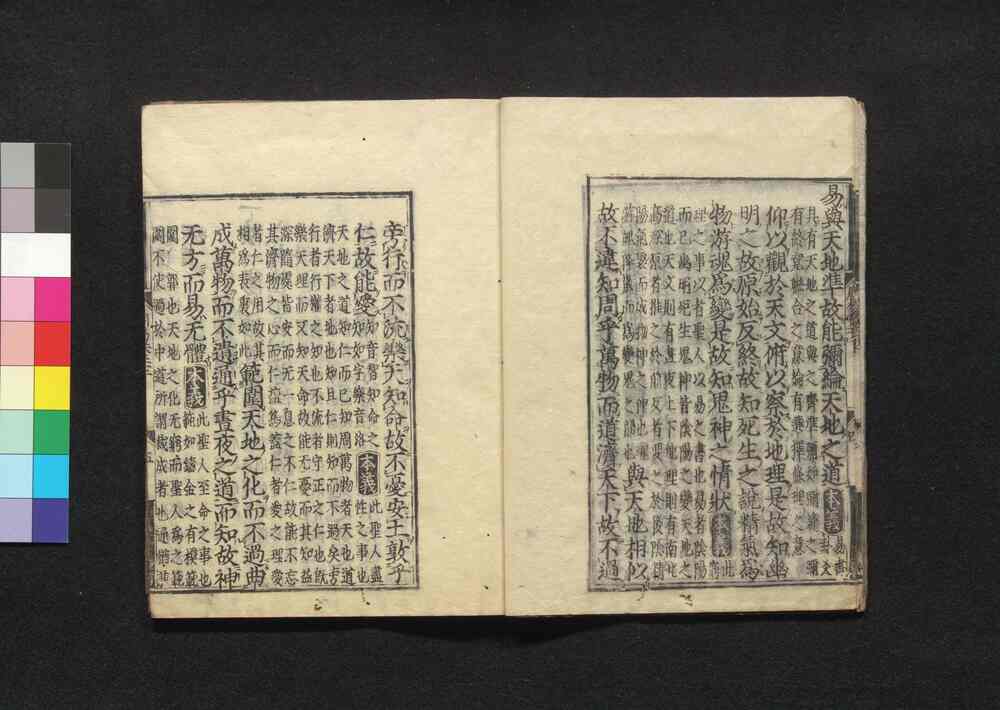 易與天地準故能彌綸天地之道本義易書卦爻
具有天地之道與之齊準彌如彌縫之彌
有終竟聯合之意綸有選擇條理之意
仰以觀於天文俯以察於地理是故知幽
明之故原始反終故知死生之說精氣爲
物游魂爲變是故知鬼神之情狀本義此窮
理之事以者聖人以易之書也易者陰陽
而已幽明死生鬼神皆陰陽之變天地之
道也天文則有晝夜上下地理則有南北
高深原者推之於前反者要之於後陰精
陽氣聚而成物神之伸也魂
游魄降散而爲變鬼之歸也
與天地相似
故不違知周乎萬物而道濟天下故不過
旁行而不流樂天知命故不憂安土敦乎
仁故能愛
知音智知命之
知如字樂音洛
本義
此聖人盡
性之事也
天地之道知仁而已知周萬物者天也道
濟天下者地也知且仁則知而不過矣旁
行者行權之知也不流者守正之仁也既
樂天理而又知天命故能无憂而其知益
深隨處皆安而无一息之不仁故能不忘
其濟物之心而仁益篤蓋仁者愛之理愛
者仁之用故其
相爲表裏如此
範圍天地之化而不過曲
成萬物而不遺通乎晝夜之道而知故神
无方而易无體
本義
此聖人至命之事也
範如鑄金之有模範
圍匡郭也天地之化无窮而聖人爲之範
圍不使過於中道所謂裁成者也通猶兼